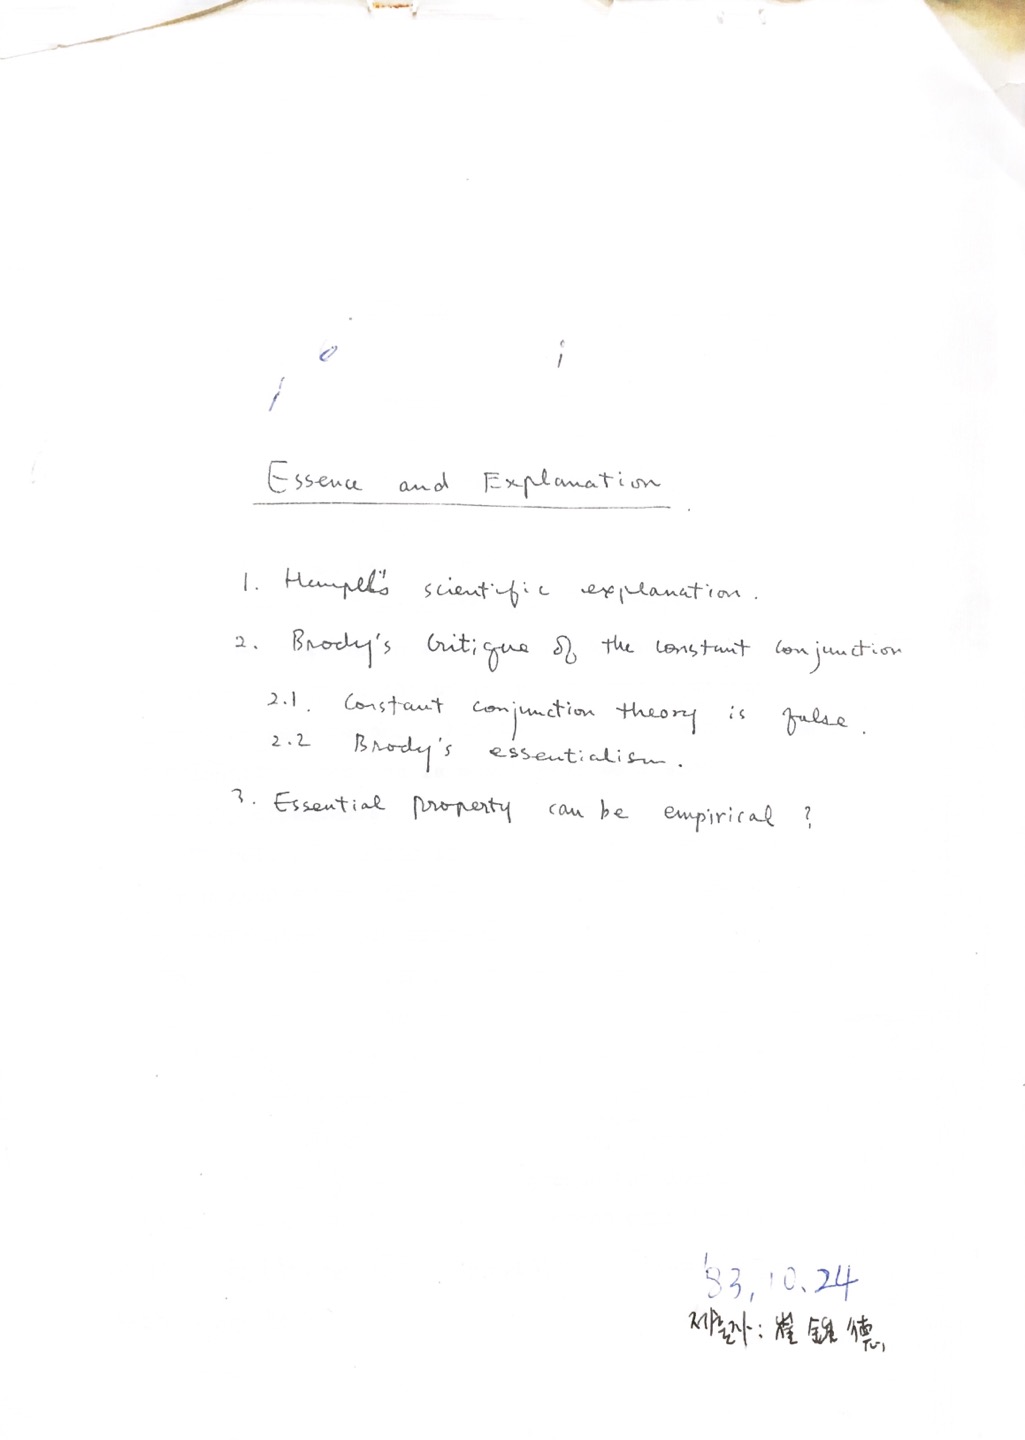 Essence and Explanation
1. Hempel's scientific explanation.
2. Brody's Critique of the constant conjunction
2.1. Constant conjunction theory is false.
2.2 Brody's essentialism.
3. Essential property can be empirical?
'83, 10. 24
제출자: 崔 德